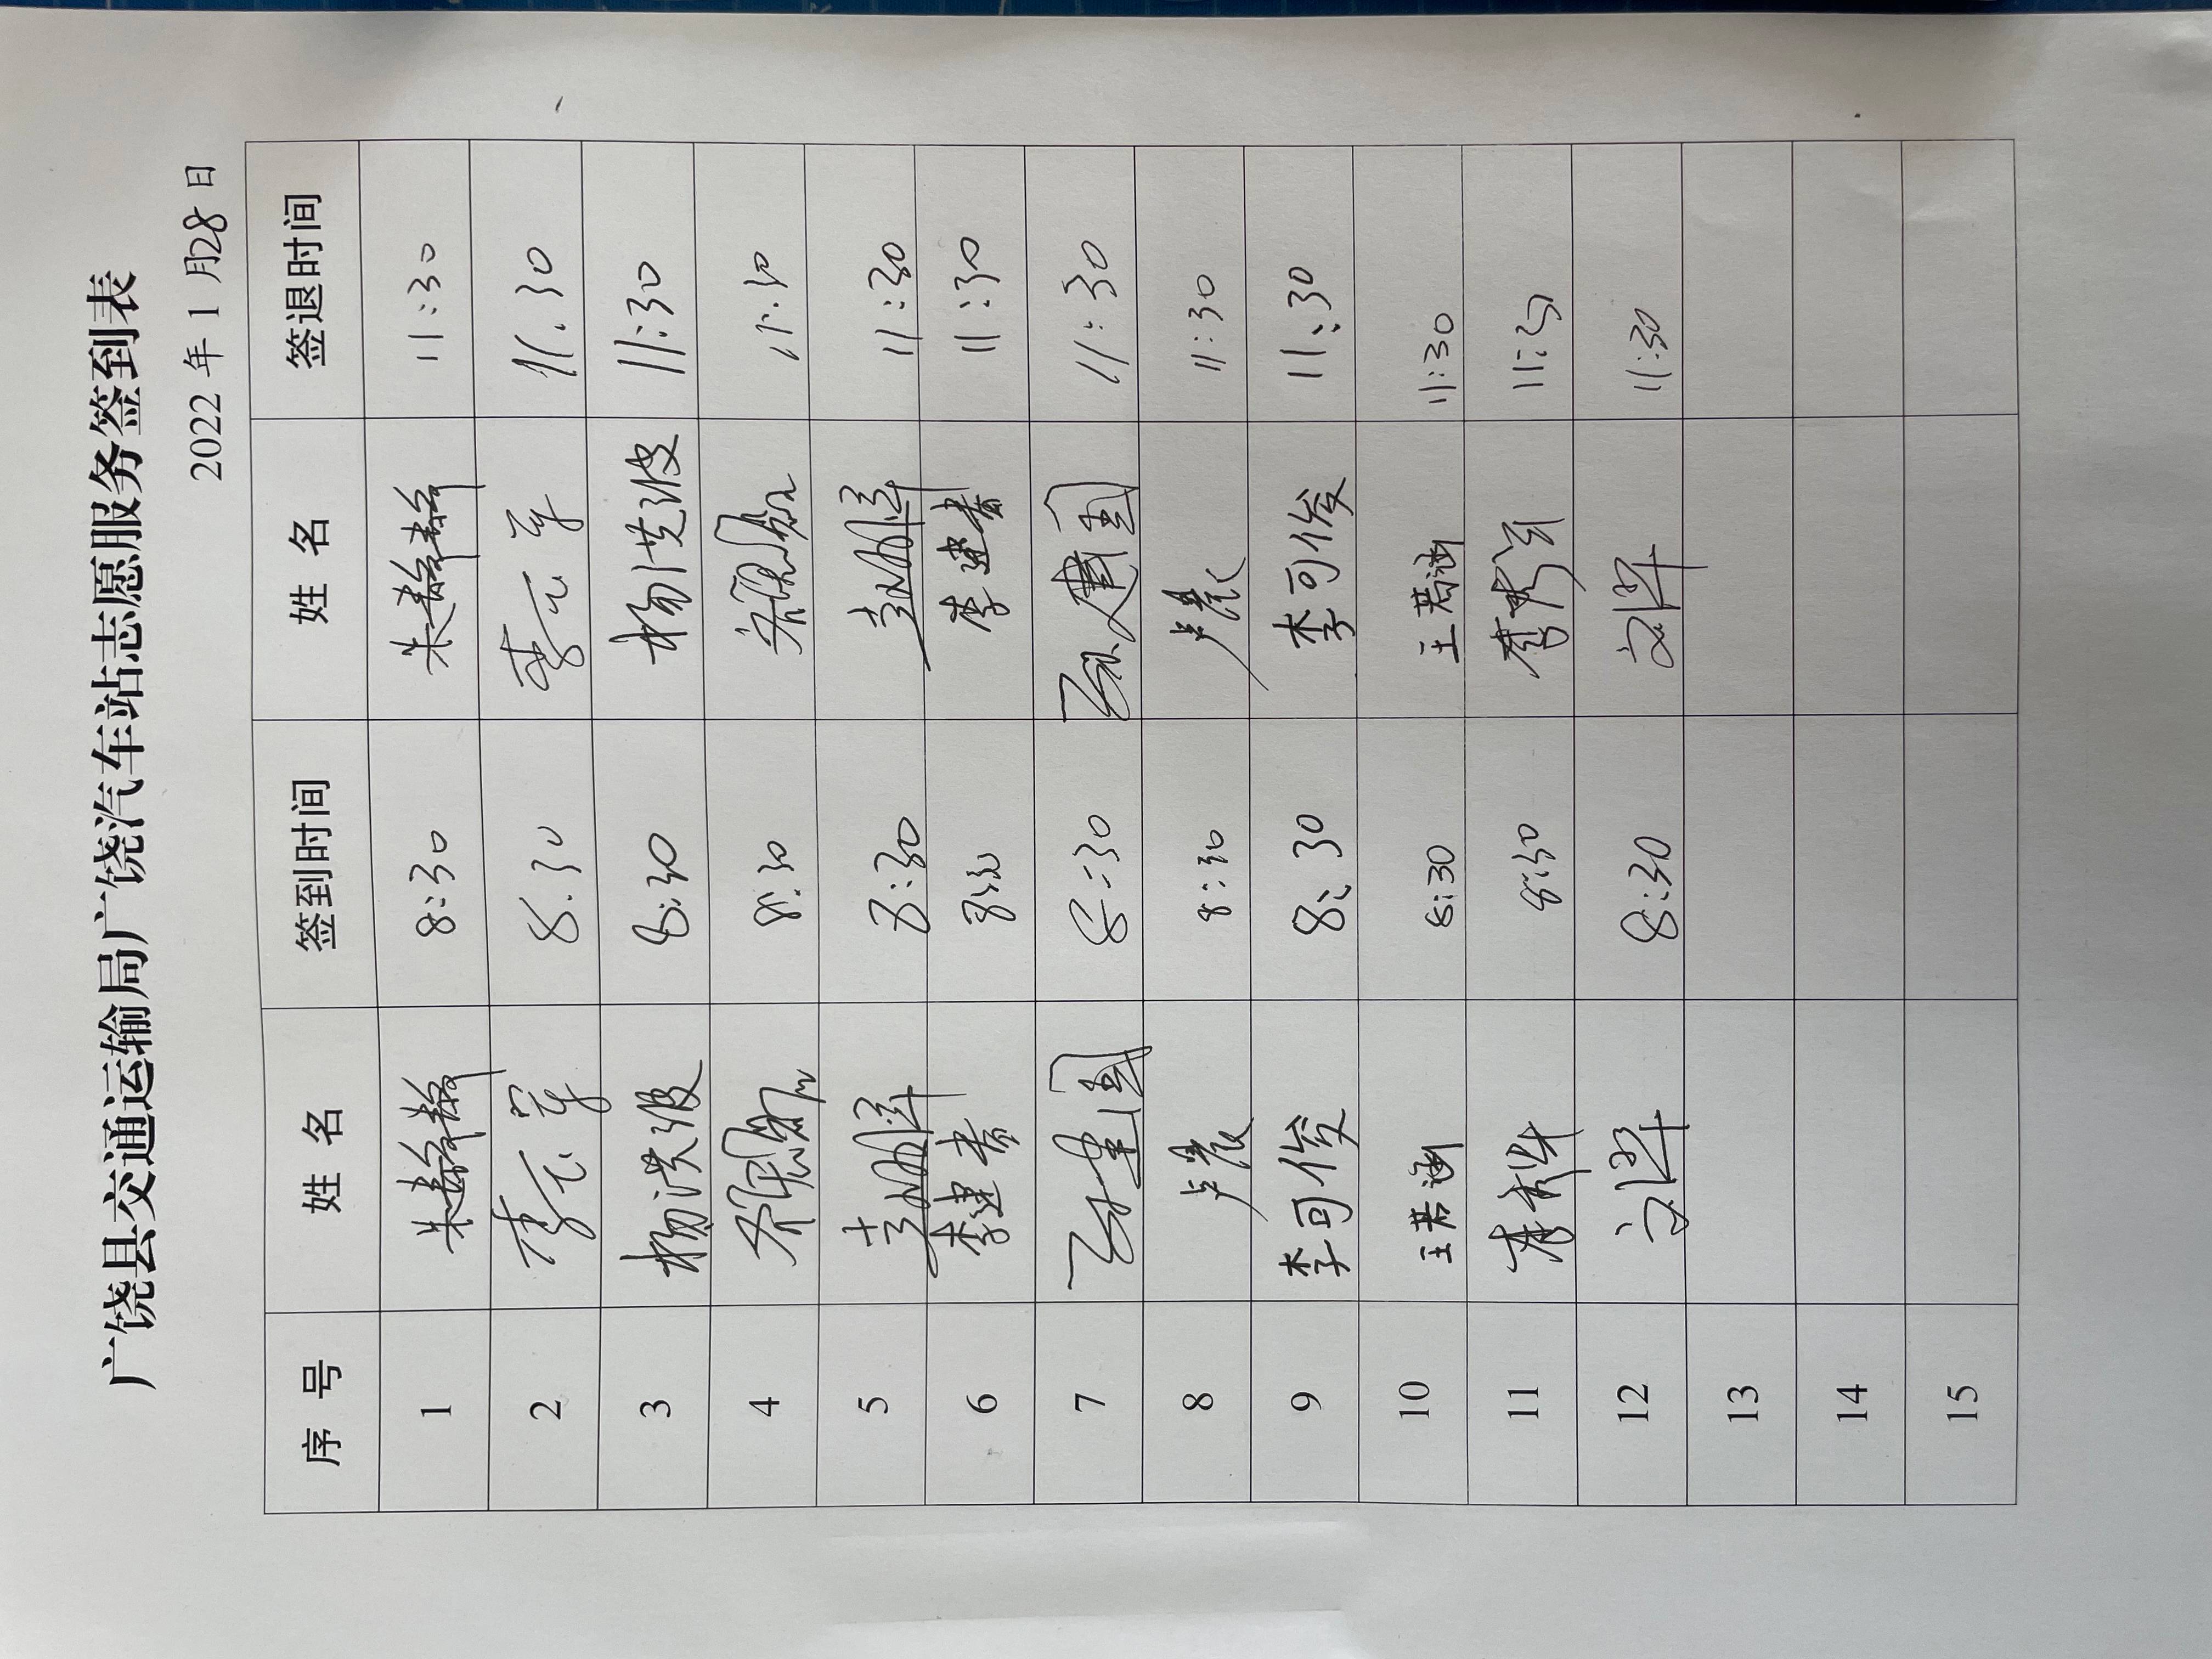 广饶县交通运输局广饶汽车站志愿服务签到表
2022 年 1 月 28 日
序 号 姓 名 签到时间 姓 名 签退时间
1 朱 8:30 朱 11:30
2 李 8:30 李 11:30
3 杨洪波 8:30 杨洪波 11:30
4 8:30 11:30
5 8:30 11:30
6 李建春 8:30 李建春 11:30
7 建国 8:30 建国 11:30
8 卢晨 8:30 卢晨 11:30
9 李可俊 8:30 李可俊 11:30
10 王若涵 8:30 王若涵 11:30
11 李 8:30 李 11:30
12 8:30 11:30
13
14
15